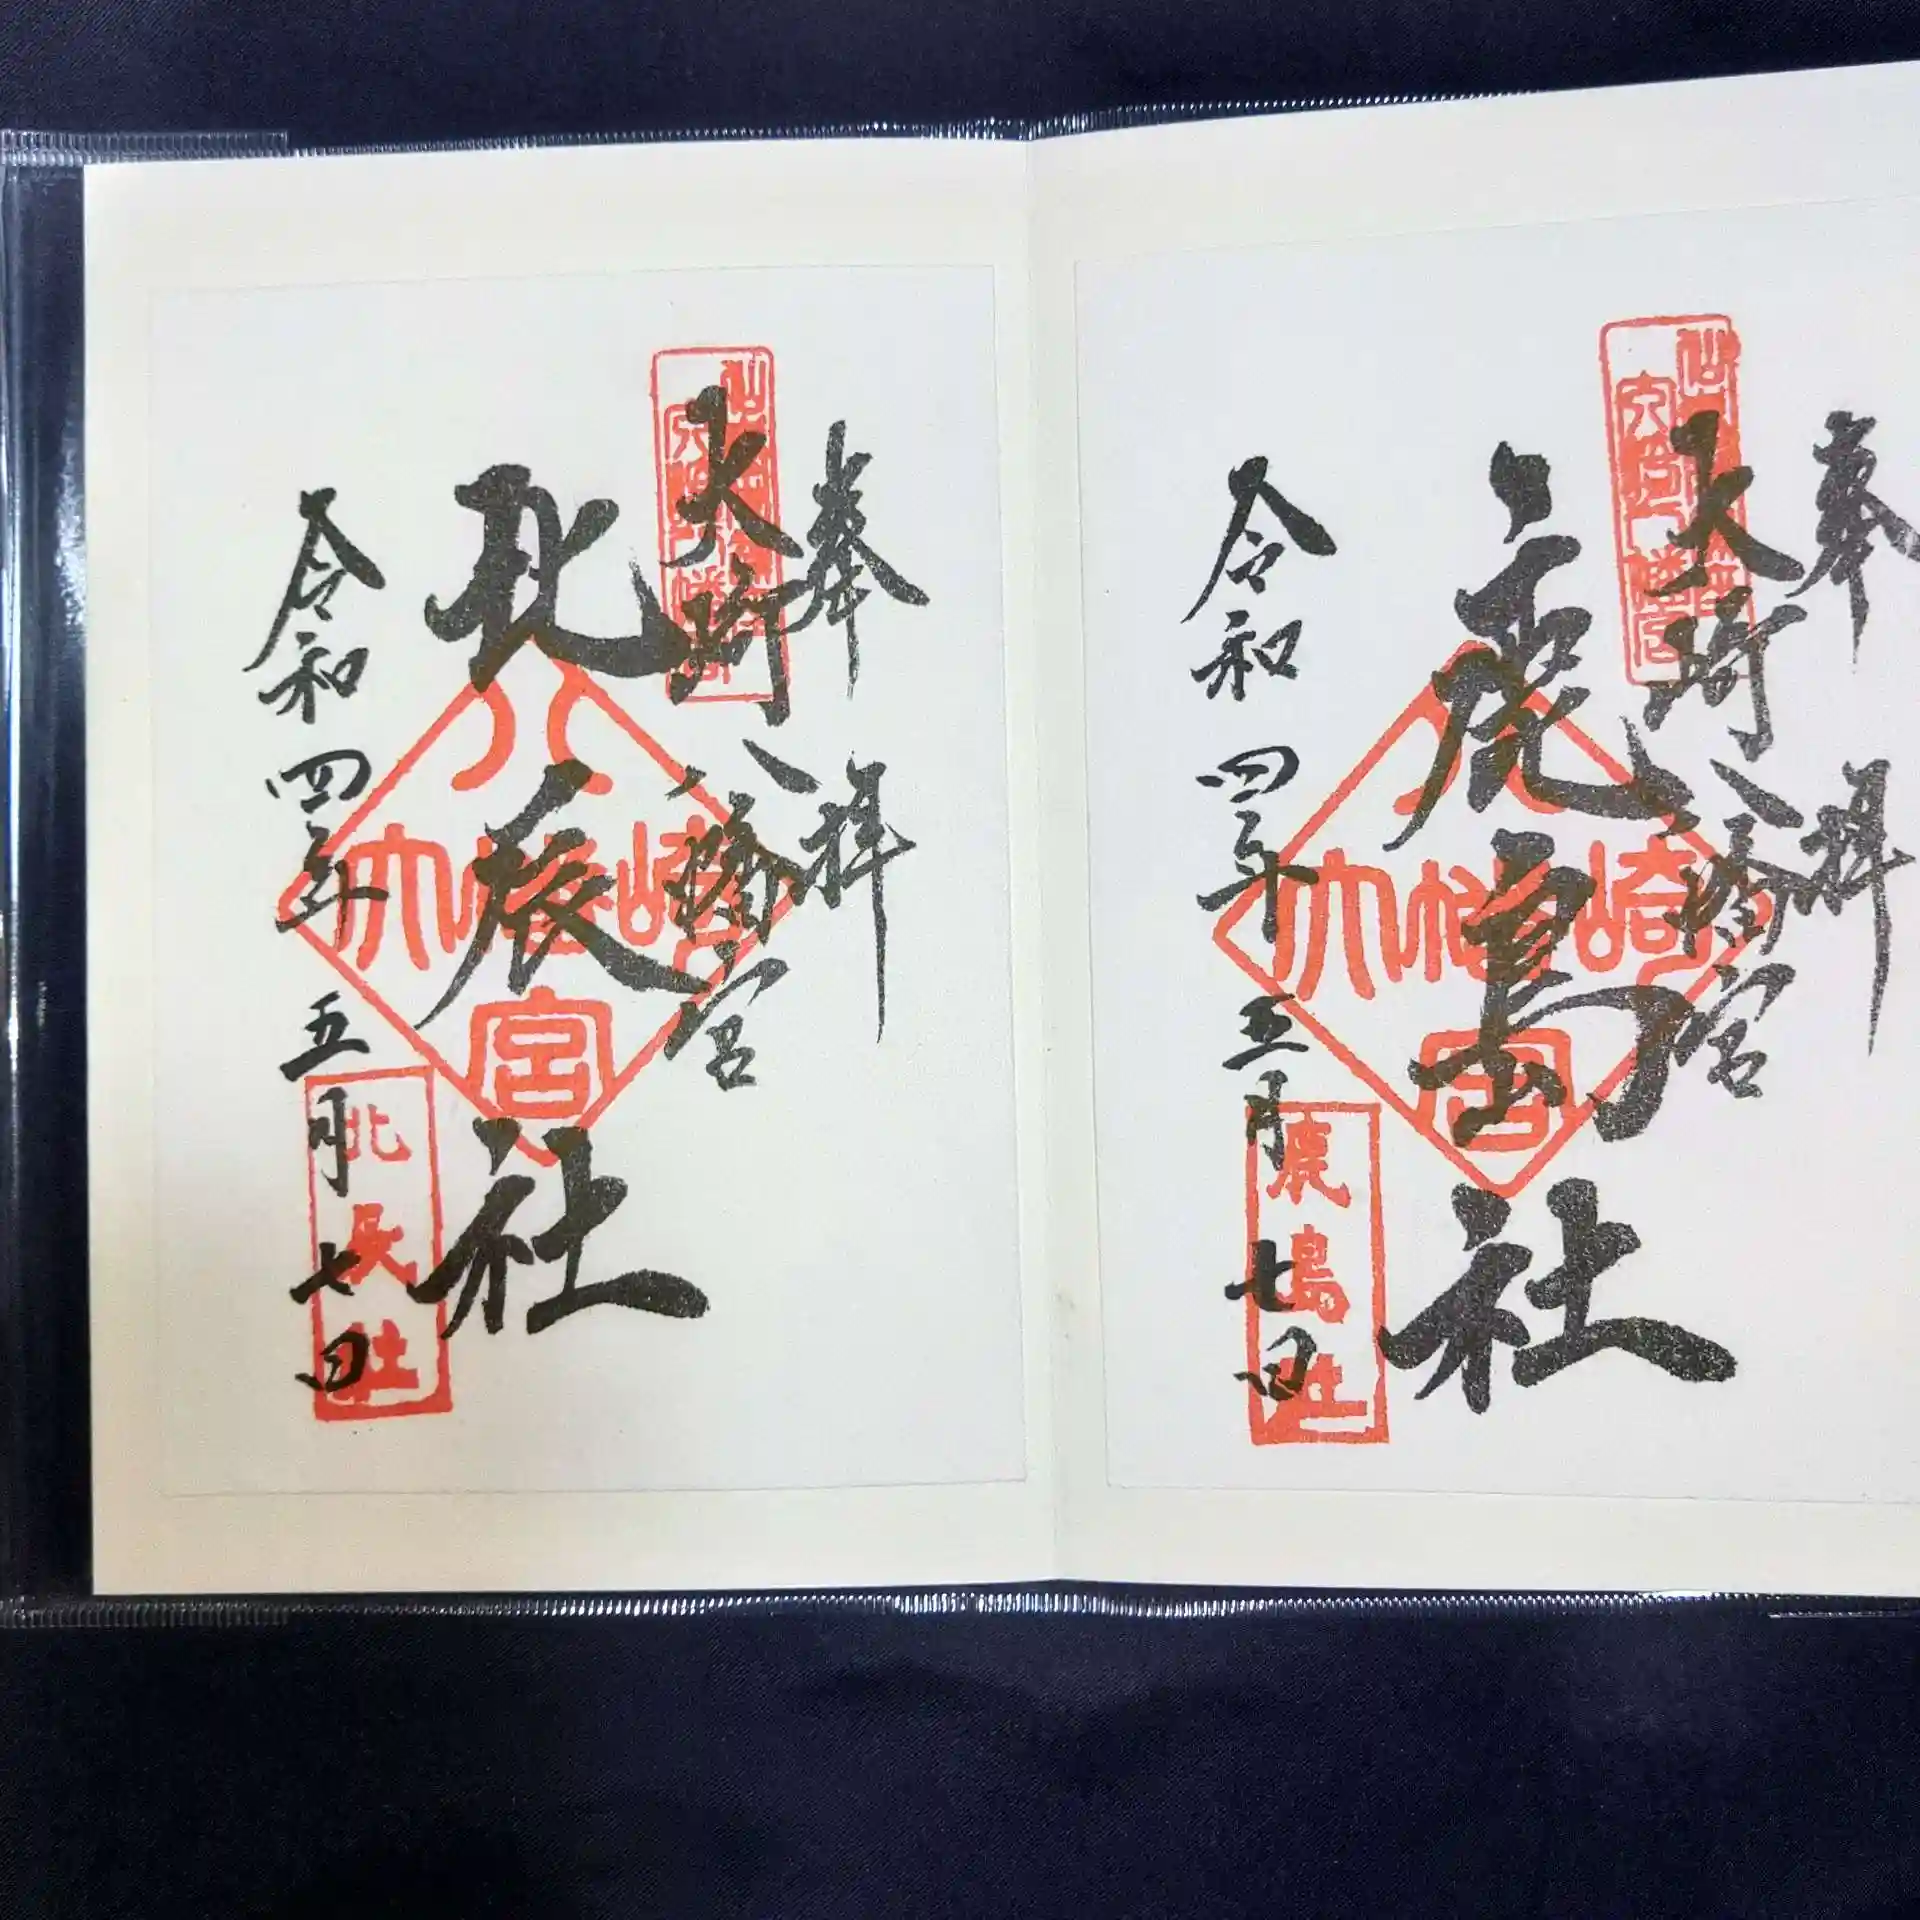 奉拝
大崎八幡宮
鹿島社
令和四年五月七日
大崎八幡宮
鹿島社
奉拝
大崎八幡宮
北辰社
令和四年五月七日
大崎八幡宮
北辰社